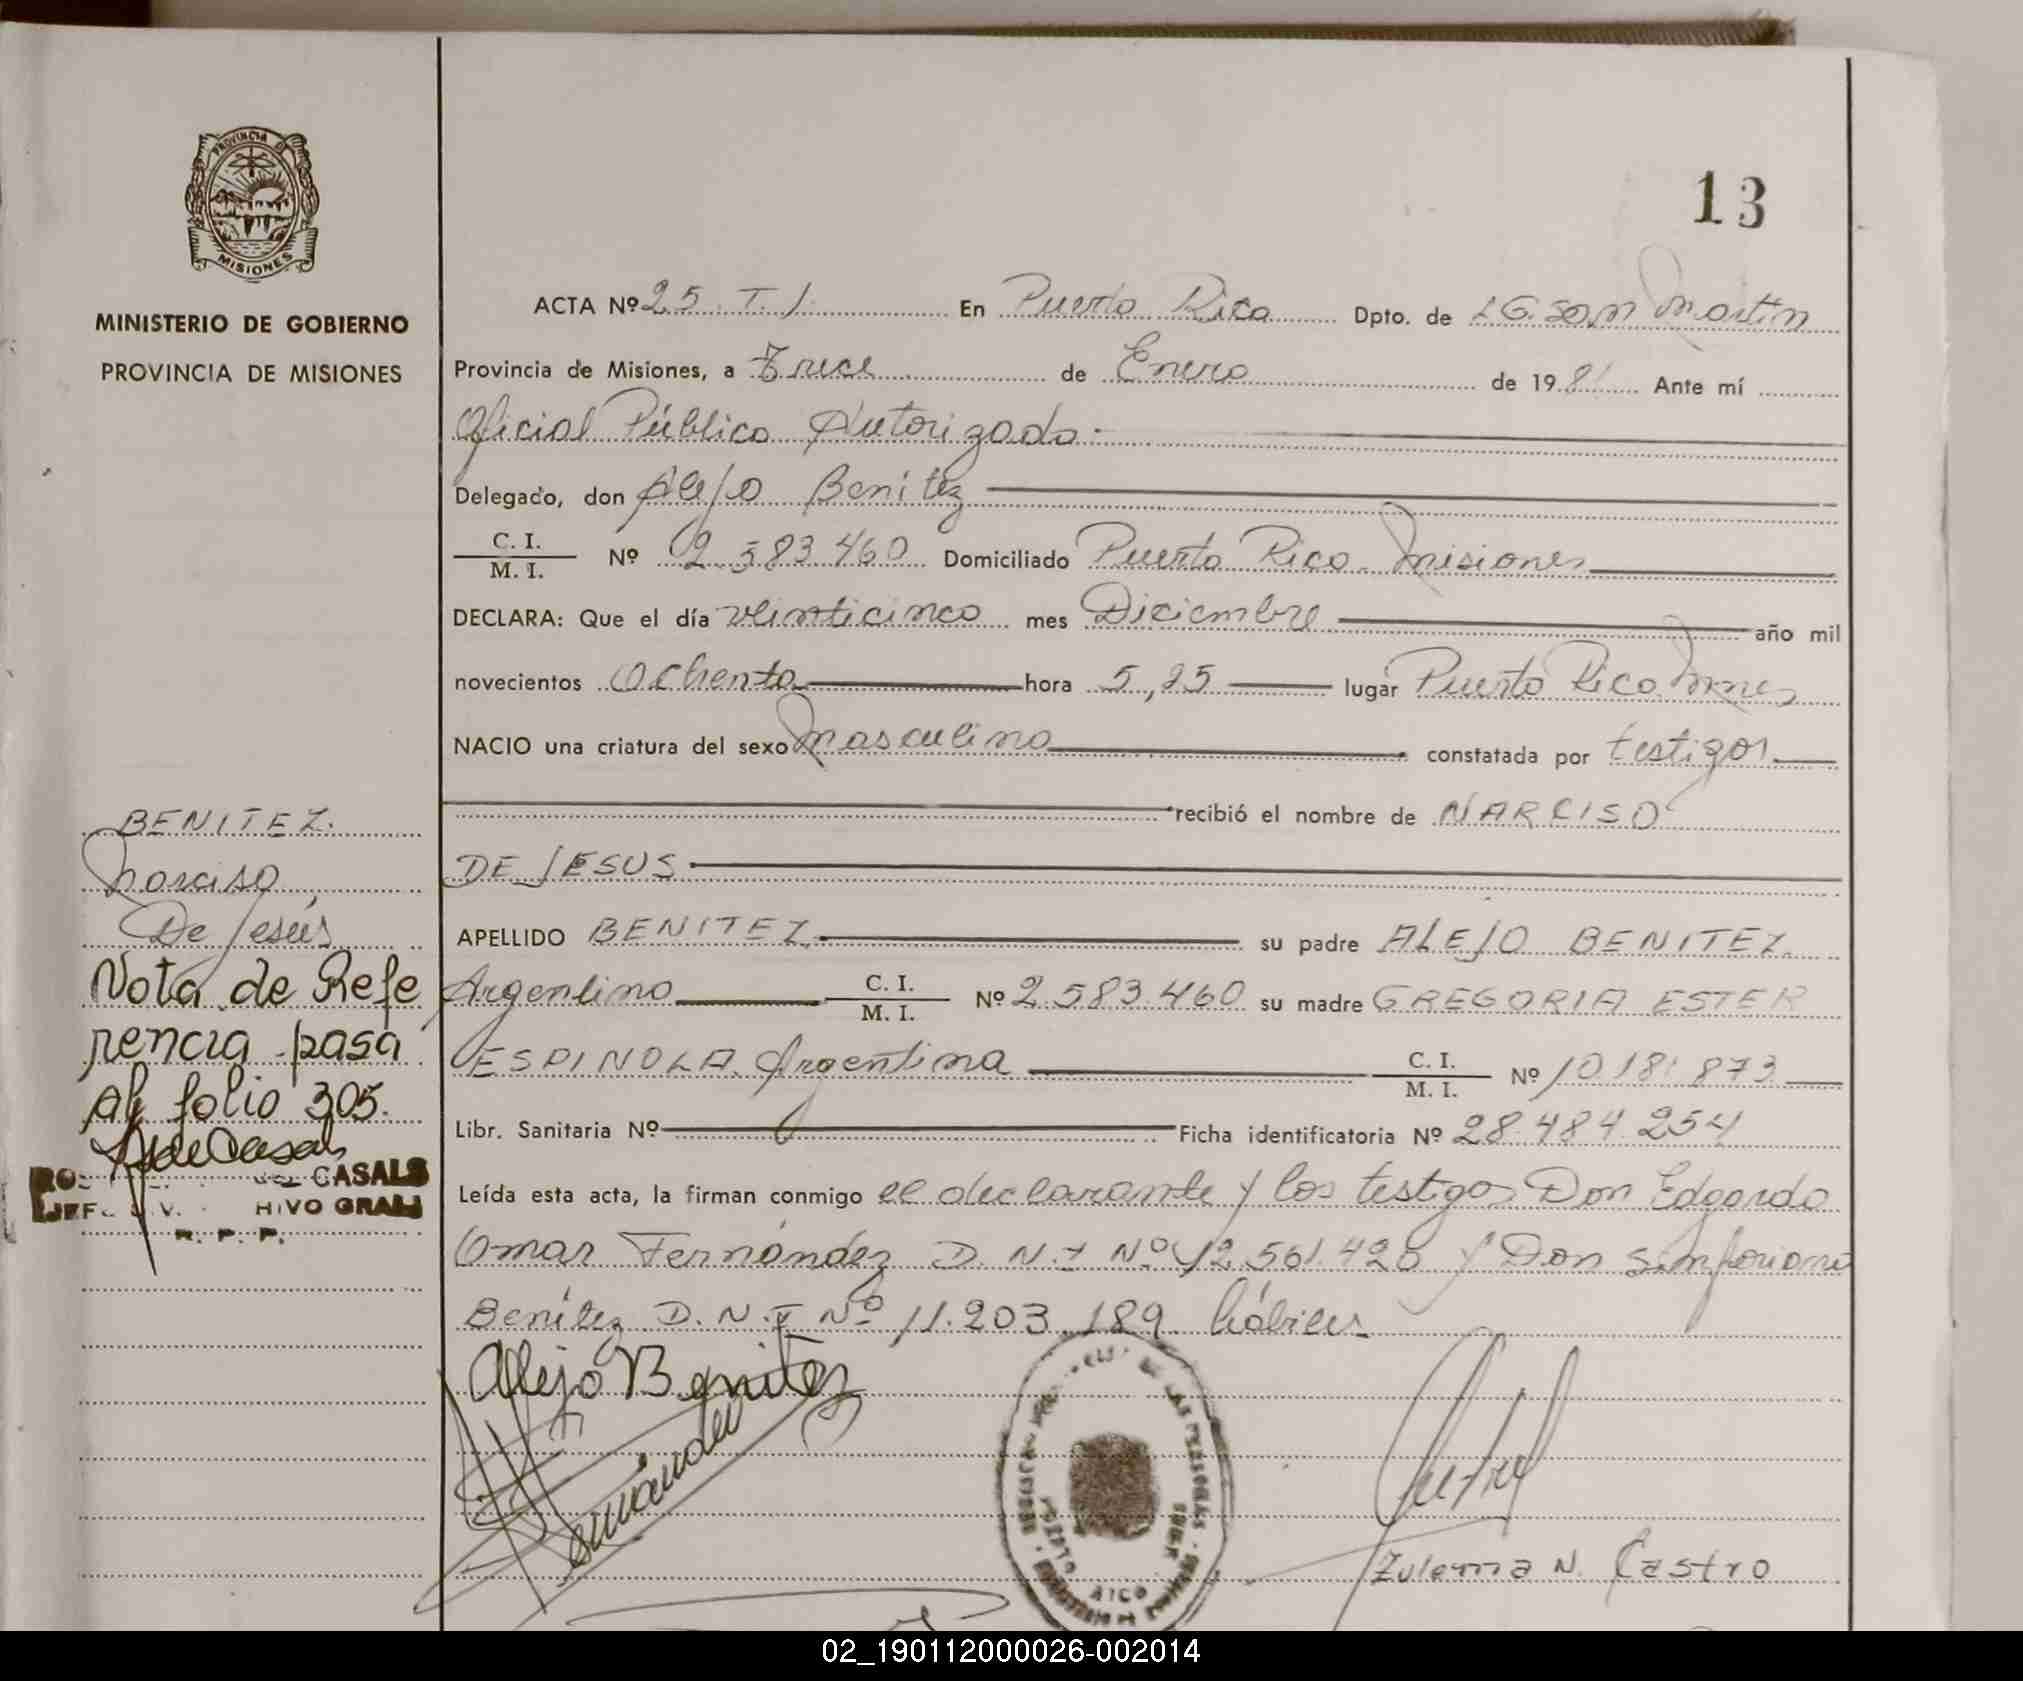 PROVINCIA DE
MISIONES
MINISTERIO DE GOBIERNO
PROVINCIA DE MISIONES
13
ACTA Nº 25. T. 1. En Puerto Rico Dpto. de LG. San Martin
Provincia de Misiones, a Trece de Enero de 1981 Ante mí
Oficial Público Autorizado.
Delegado, don Alejo Benitez
C. I. / M. I. Nº 2.583.460 Domiciliado Puerto Rico. Misiones
DECLARA: Que el día veinticinco mes Diciembre año mil
novecientos Ochenta hora 5,25 lugar Puerto Rico Mnes
NACIO una criatura del sexo Masculino constatada por testigos
recibió el nombre de NARCISO
DE JESUS
APELLIDO BENITEZ su padre ALEJO BENITEZ.
Argentino C. I. / M. I. Nº 2.583.460 su madre GREGORIA ESTER
ESPINOLA. Argentina C. I. / M. I. Nº 10.181.873
Libr. Sanitaria Nº Ficha identificatoria Nº 28.484.254
Leída esta acta, la firman conmigo el declarante y los testigos Don Edgardo
Omar Fernández D.N.I Nº 12.561.420 y Don Simforiano
Benítez D.N.I Nº 11.203.189 hábiles
BENITEZ.
Narciso
De Jesús
Nota de Refe
rencia pasa
al folio 305.
CASALS
HIVO GRAL
R. P. P.
Alejo Benitez
Fernández
DE LAS PERSONAS
PUERTO RICO
Zulema N. Castro
02_190112000026-002014